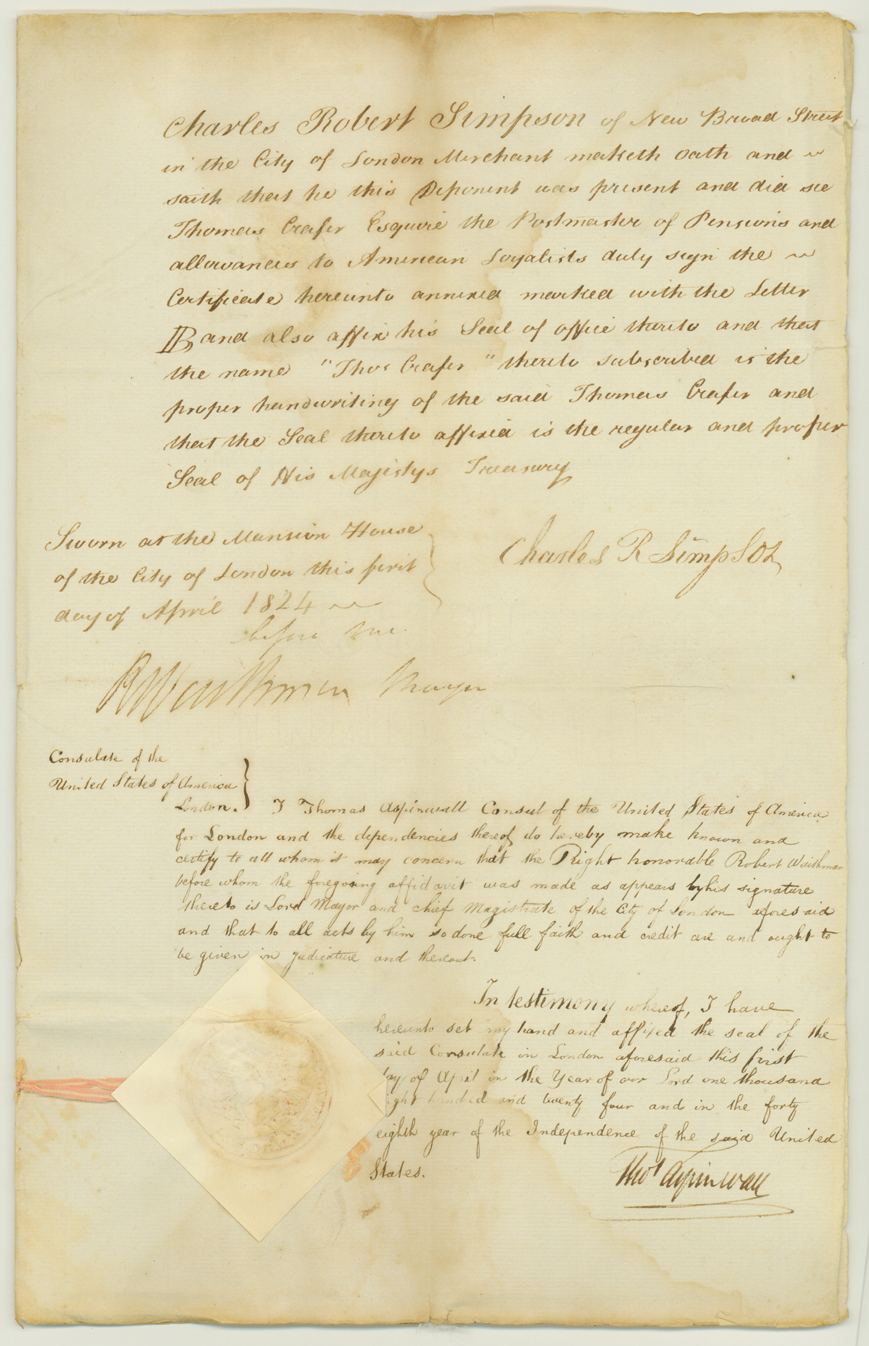 Charles Robert Simpson of New Broad Street
in the City of London Merchant maketh Oath and
saith that he this Deponent was present and did see
Thomas Crafer Esquire the Postmaster of Pensions and
allowances to American Loyalists duly sign the
Certificate hereunto annexed marked with the Letter
B, and also affix his Seal of office thereto and that
the name "Thos Crafer" thereto subscribed is the
proper handwriting of the said Thomas Crafer and
that the Seal thereto affixed is the regular and proper
Seal of His Majestys Treasury
Sworn at the Mansion House
of the City of London this first
day of April 1824
before me
Charles R Simpson
R Waithman Mayor
Consulate of the
United States of America
London. I Thomas Aspinwall Consul of the United States of America
for London and the dependencies thereof, do hereby make known and
certify to all whom it may concern that the Right honorable Robert Waithman
before whom the foregoing affidavit was made as appears by his signature
thereto is Lord Mayor and chief Magistrate of the City of London aforesaid
and that to all acts by him so done full faith and credit are and ought to
be given in judicature and thereout.
In testimony whereof, I have
hereunto set my hand and affixed the seal of the
said Consulate in London aforesaid this first
day of April in the Year of our Lord one thousand
eight hundred and twenty four and in the forty
eighth year of the Independence of the said United
States.
Thos Aspinwall